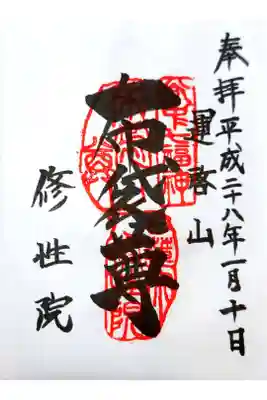 奉拝平成二十八年一月十日
運啓山
布袋尊
修性院